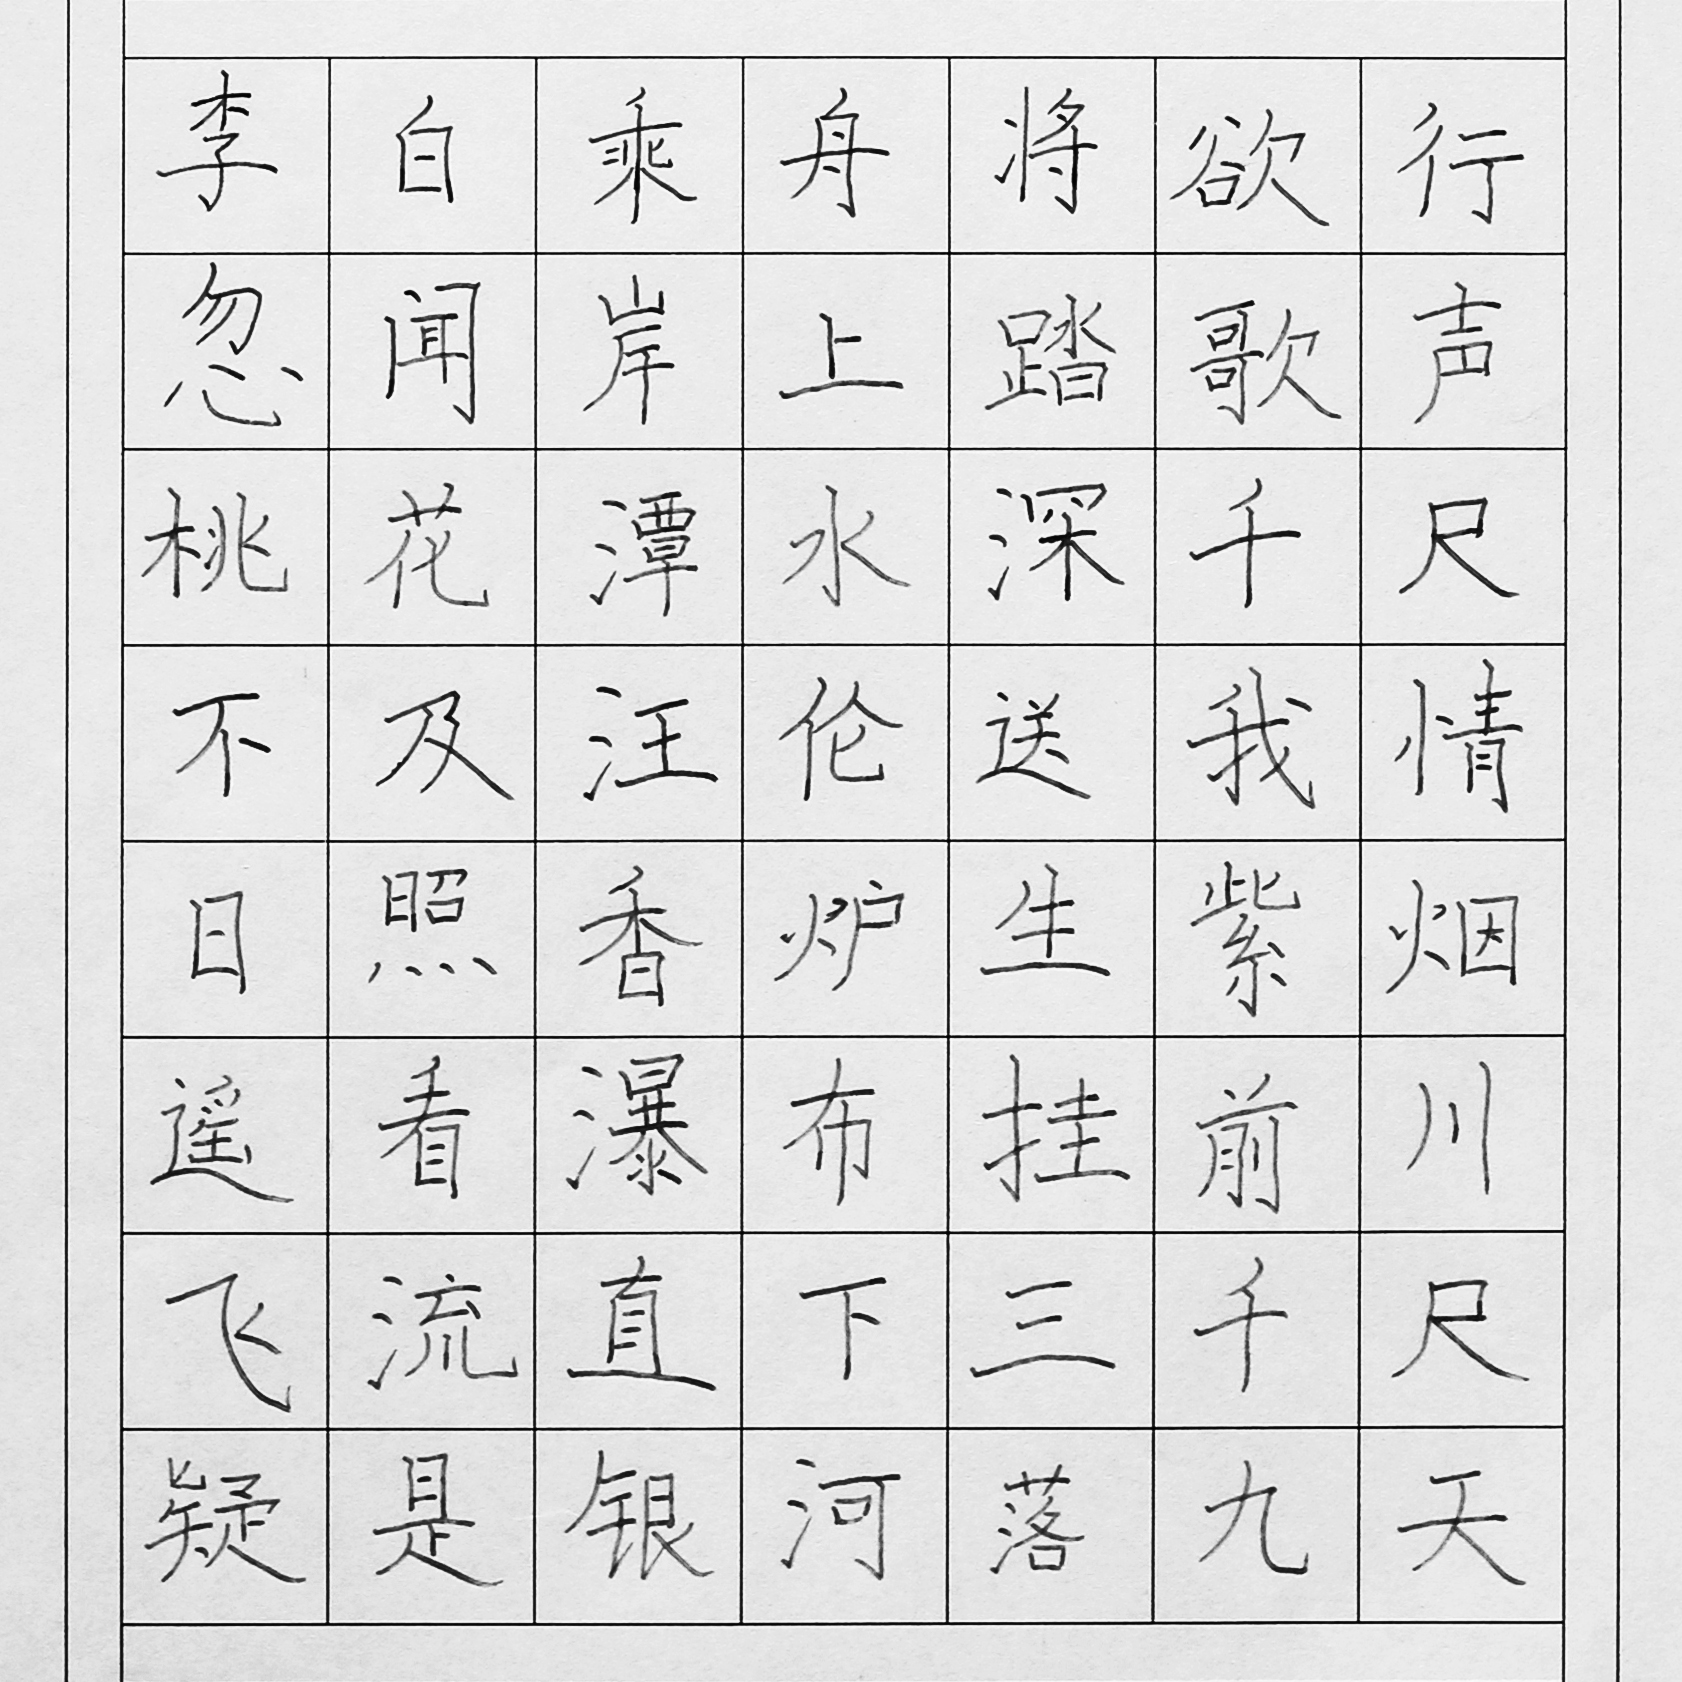 李白乘舟将欲行
忽闻岸上踏歌声
桃花潭水深千尺
不及汪伦送我情
日照香炉生紫烟
遥看瀑布挂前川
飞流直下三千尺
疑是银河落九天